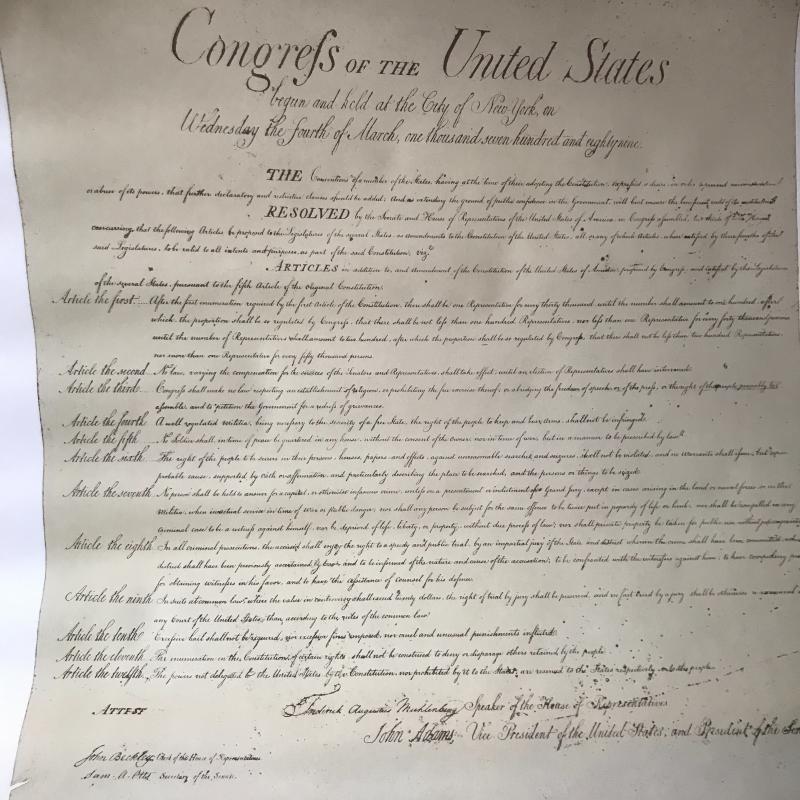 Congreſs OF THE United States
begun and held at the City of New-York, on
Wednesday the fourth of March, one thousand seven hundred and eighty nine.
THE Conventions of a number of the States, having at the time of their adopting the Constitution, expreſsed a desire, in order to prevent misconstruction
or abuse of its powers, that further declaratory and restrictive clauses should be added: And as extending the ground of public confidence in the Government, will best ensure the beneficent ends of its institution
RESOLVED by the Senate and House of Representatives of the United States of America in Congreſs aſsembled, two thirds of both Houses
concurring, that the following Articles be proposed to the Legislatures of the several States, as amendments to the Constitution of the United States, all or any of which Articles, when ratified by three fourths of the
said Legislatures, to be valid to all intents and purposes, as part of the said Constitution, viz.t
ARTICLES in addition to, and amendment of the Constitution of the United States of America, proposed by Congreſs, and ratified by the Legislatures
of the several States, pursuant to the fifth Article of the original Constitution.
Article the first.... After the first enumeration required by the first Article of the Constitution, there shall be one Representative for every thirty thousand, until the number shall amount to one hundred, after
which, the proportion shall be so regulated by Congreſs, that there shall be not leſs than one hundred Representatives, nor leſs than one Representative for every forty thousand persons
until the number of Representatives shall amount to two hundred, after which the proportion shall be so regulated by Congreſs, that there shall not be leſs than two hundred Representatives,
nor more than one Representative for every fifty thousand persons.
Article the second... No law, varying the compensation for the services of the Senators and Representatives, shall take effect, until an election of Representatives shall have intervened.
Article the third..... Congreſs shall make no law respecting an establishment of religion, or prohibiting the free exercise thereof; or abridging the freedom of speech, or of the press; or the right of the people peaceably to
aſsemble, and to petition the Government for a redreſs of grievances.
Article the fourth. A well regulated militia, being neceſsary to the security of a free State, the right of the people to keep and bear Arms, shall not be infringed.
Article the fifth.... No Soldier shall, in time of peace be quartered in any house, without the consent of the owner, nor in time of war, but in a manner to be prescribed by law.
Article the sixth... The right of the people to be secure in their persons, houses, papers, and effects, against unreasonable searches and seizures, shall not be violated, and no Warrants shall iſsue, but upon
probable cause, supported by oath or affirmation, and particularly describing the place to be searched, and the persons or things to be seized.
Article the seventh No person shall be held to answer for a capital, or otherwise infamous crime, unleſs on a presentment or indictment of a Grand Jury, except in cases arising in the land or naval forces, or in the
Militia, when in actual service in time of War or public danger; nor shall any person be subject for the same offence to be twice put in jeopardy of life or limb, nor shall be compelled in any
criminal case to be a witneſs against himself, nor be deprived of life, liberty, or property, without due proceſs of law; nor shall private property be taken for public use without just compensation
Article the eighth In all criminal prosecutions, the accused shall enjoy the right to a speedy and public trial, by an impartial jury of the State and district wherein the crime shall have been committed, which
district shall have been previously ascertained by law, and to be informed of the nature and cause of the accusation; to be confronted with the witneſses against him; to have compulsory process
for obtaining witneſses in his favor, and to have the aſsistance of counsel for his defence.
Article the ninth In suits at common law, where the value in controversy shall exceed twenty dollars, the right of trial by jury shall be preserved, and no fact tried by a jury shall be otherwise re-examined in
any Court of the United States, than according to the rules of the common law.
Article the tenth Exceſsive bail shall not be required, nor exceſsive fines imposed, nor cruel and unusual punishments inflicted.
Article the eleventh The enumeration in the Constitution, of certain rights, shall not be construed to deny or disparage others retained by the people.
Article the twelfth. The powers not delegated to the United States by the Constitution, nor prohibited by it to the States, are reserved to the States respectively, or to the people.
ATTEST
Frederick Augustus Muhlenberg Speaker of the House of Representatives
John Adams, Vice President of the United States, and President of the
John Beckley, Clerk of the House of Representatives.
Sam. A. Otis Secretary of the Senate.